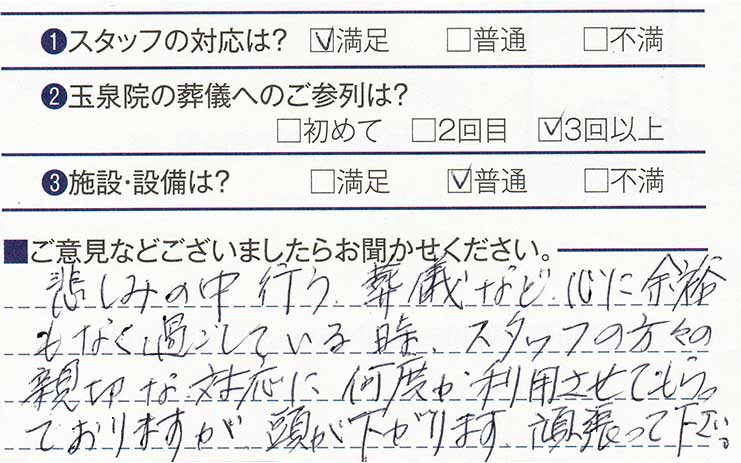 ❶スタッフの対応は? ☑満足 □普通 □不満
❷玉泉院の葬儀へのご参列は?
□初めて □2回目 ☑3回以上
❸施設・設備は? □満足 ☑普通 □不満
■ご意見などございましたらお聞かせください。
悲しみの中行う、葬儀など、心に余裕
もなく過ごしている時、スタッフの方々の
親切な対応に何度か利用させてもらっ
ておりますが、頭が下がります、頑張って下さい。